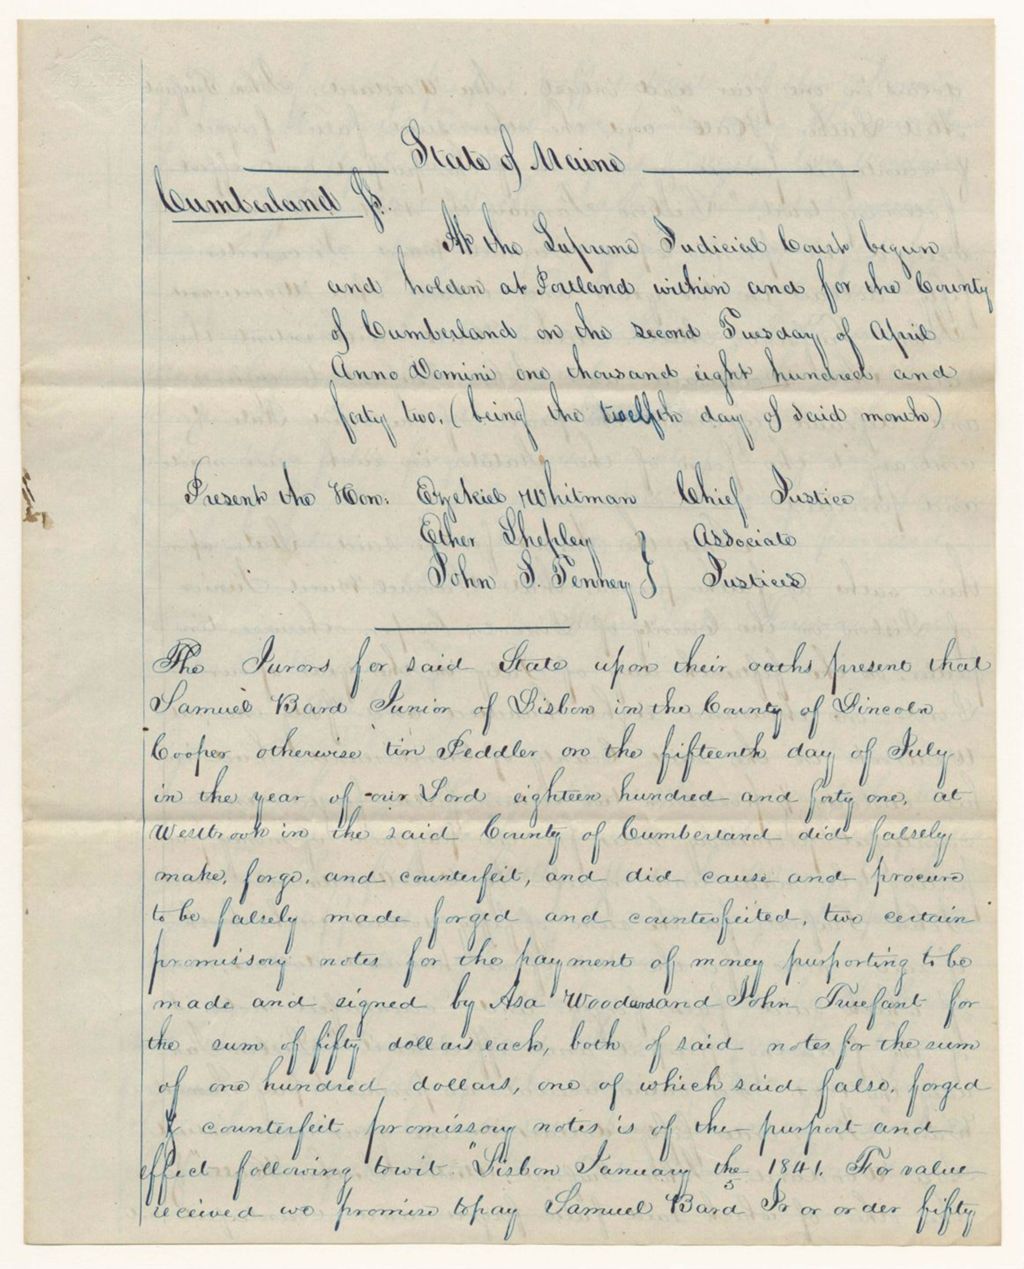 State of Maine
Cumberland Ss.
At the Supreme Judicial Court begun
and holden at Portland within and for the County
of Cumberland on the second Tuesday of April
Anno Domini one thousand eight hundred and
forty two, (being the twelfth day of said month)
Present the Hon: Ezekiel Whitman Chief Justice
Ether Shepley } Associate
John S. Tenney } Justices
The Jurors for said State upon their oaths present that
Samuel Bard Junior of Lisbon in the County of Lincoln
Cooper otherwise tin Peddler on the fifteenth day of July
in the year of our Lord eighteen hundred and forty one, at
Westbrook in the said County of Cumberland did falsely
make, forge, and counterfeit, and did cause and procure
to be falsely made forged and counterfeited, two certain
promissory notes for the payment of money purporting to be
made and signed by Asa Woodward and John Truefant for
the sum of fifty dollars each, both of said notes for the sum
of one hundred dollars, one of which said false, forged
& counterfeit promissory notes is of the purport and
effect following towit "Lisbon January the 5 1841. For value
received we promise to pay Samuel Bard Jr or order fifty